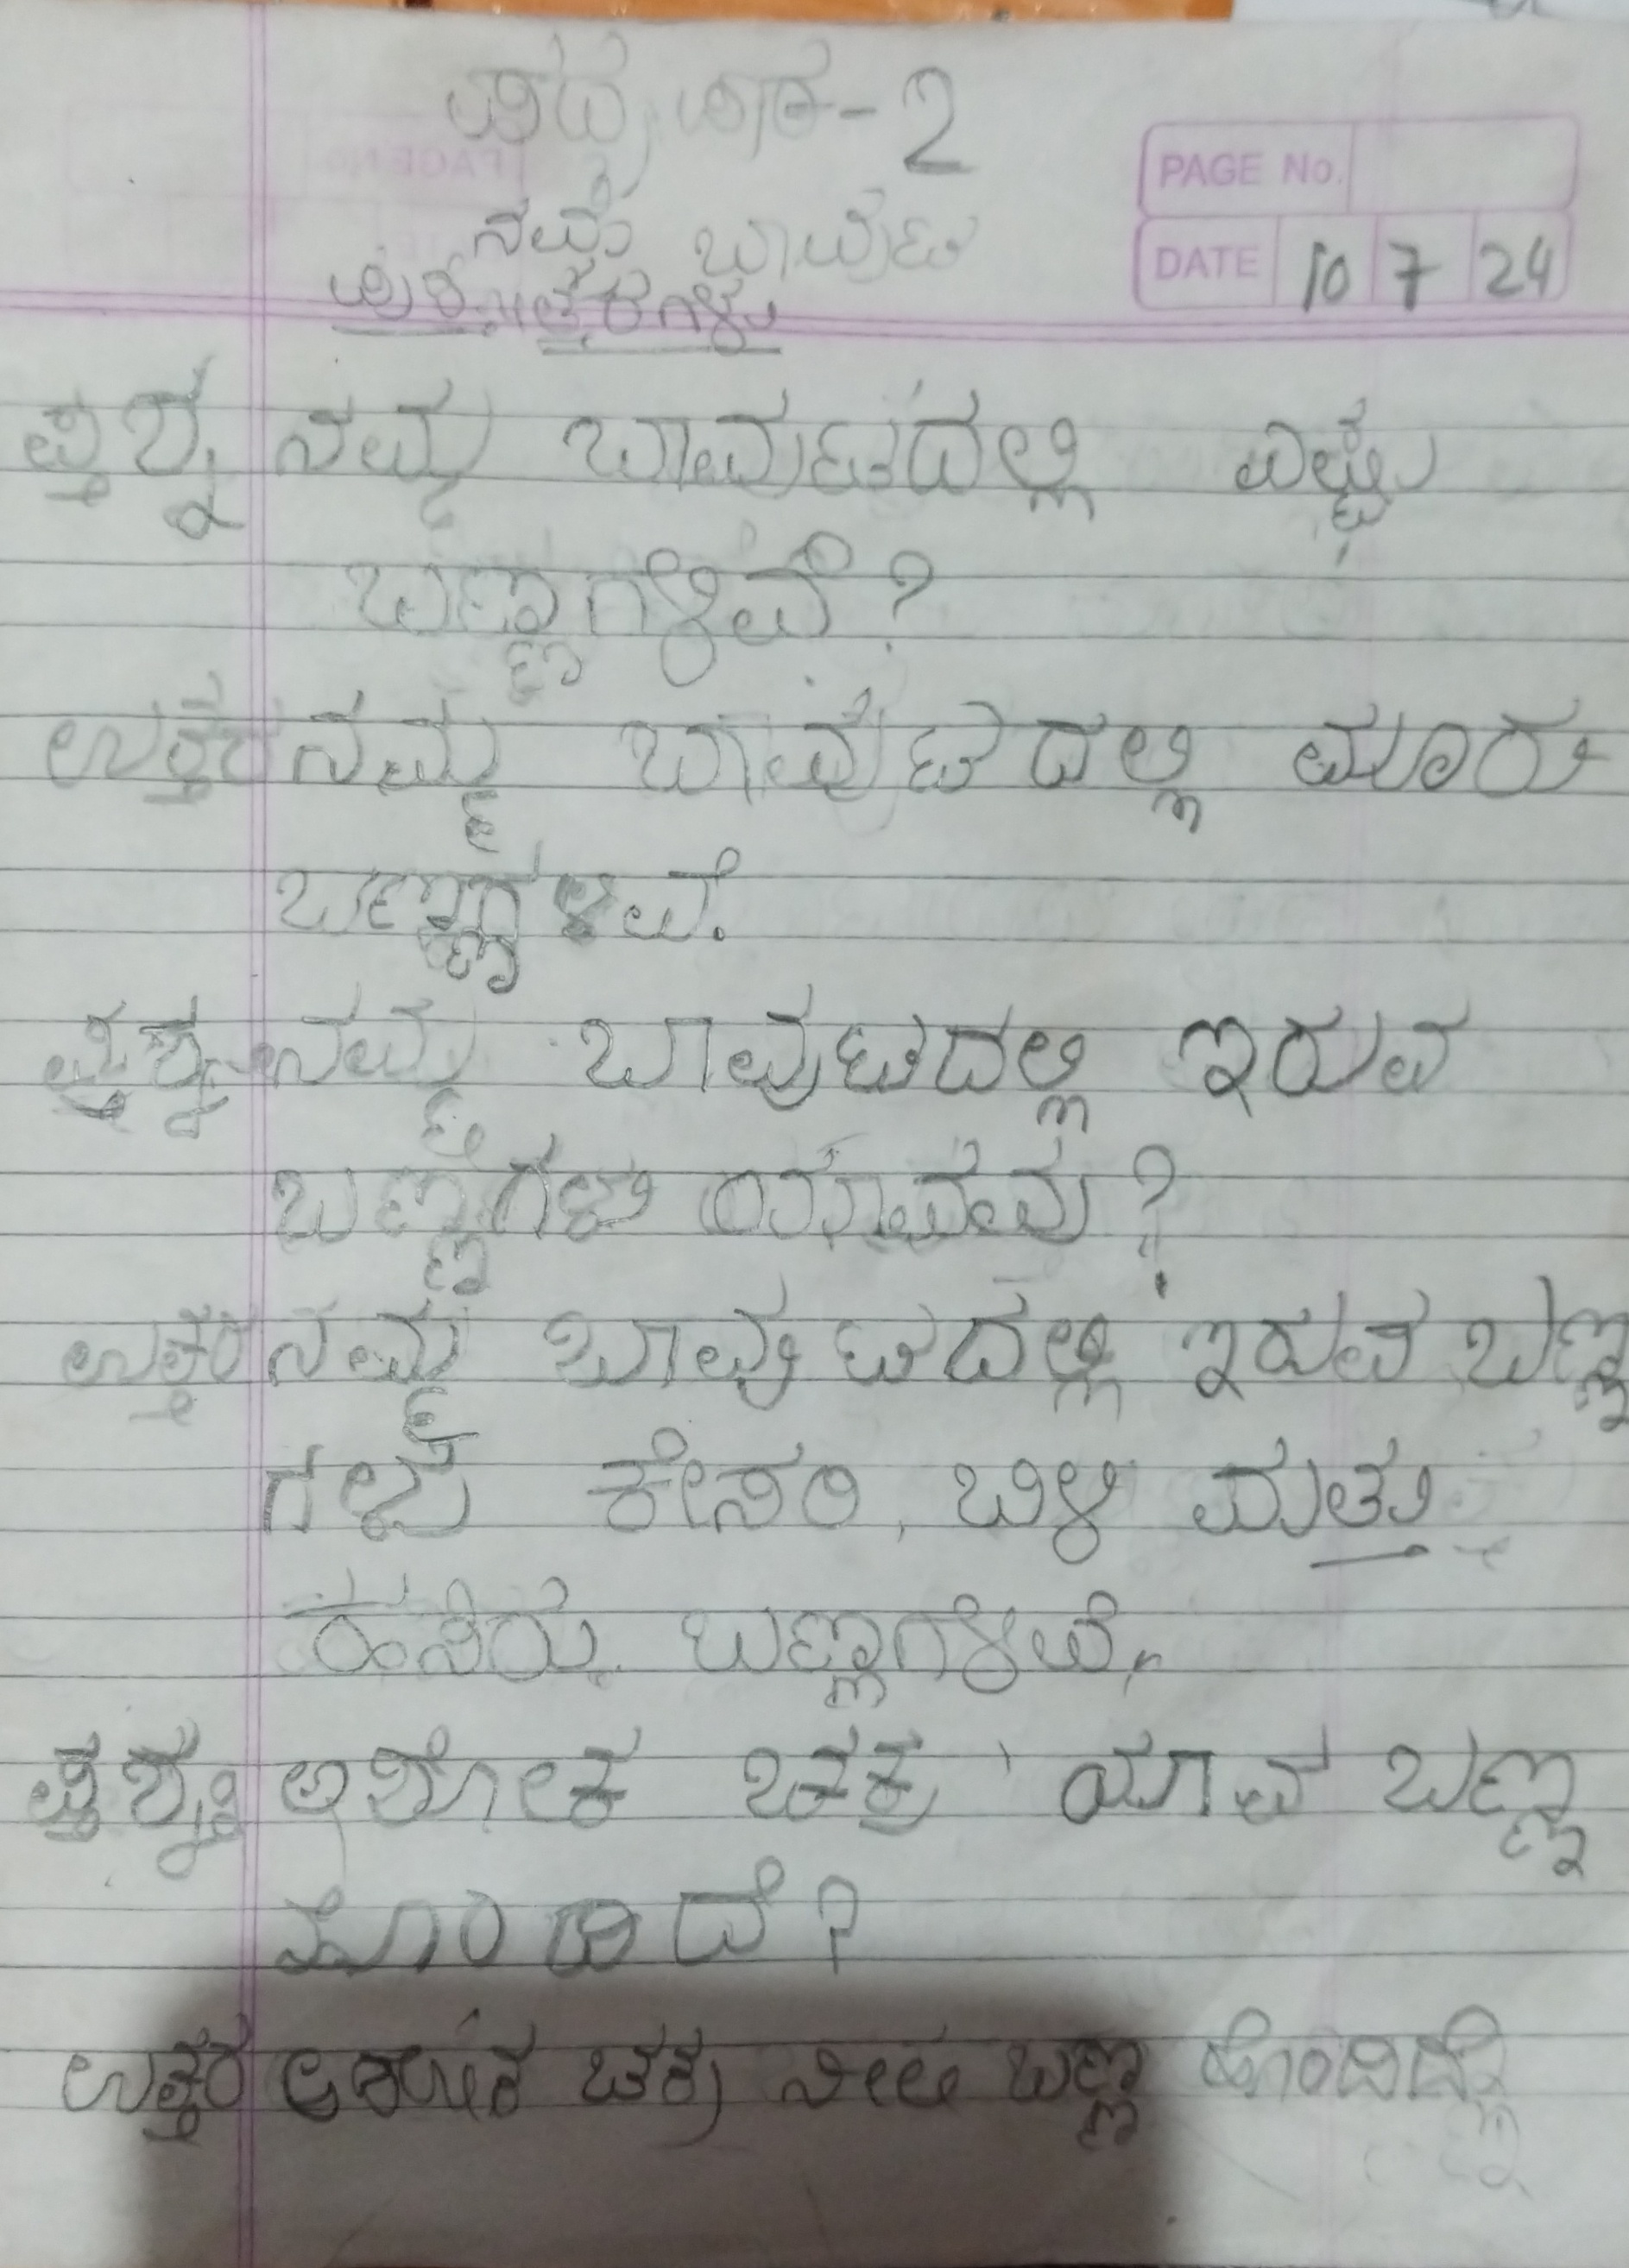 ಪದ್ಯ ಪಾಠ-2
PAGE No.
ನಮ್ಮ ಬಾವುಟ
DATE 10 7 24
ಪ್ರಶ್ನ ನಮ್ಮ ಬಾವುಟದಲ್ಲಿ ಎಷ್ಟು
ಬಣ್ಣಗಳಿವೆ?
ಉತ್ತರ ನಮ್ಮ ಬಾವುಟದಲ್ಲಿ ಮೂರು
ಬಣ್ಣಗಳಿವೆ.
ಪ್ರಶ್ನ ನಮ್ಮ ಬಾವುಟದಲ್ಲಿ ಇರುವ
ಬಣ್ಣಗಳು ಯಾವುವು?
ಉತ್ತರ ನಮ್ಮ ಬಾವುಟದಲ್ಲಿ ಇರುವ ಬಣ್ಣ
ಗಳು ಕೇಸರಿ, ಬಿಳಿ ಮತ್ತು
ಹಸಿರು ಬಣ್ಣಗಳಿವೆ.
ಪ್ರಶ್ನ ಅಶೋಕ ಚಕ್ರ ಯಾವ ಬಣ್ಣ
ಹೊಂದಿದೆ?
ಉತ್ತರ ಅಶೋಕ ಚಕ್ರ ನೀಲಿ ಬಣ್ಣ ಹೊಂದಿದೆ